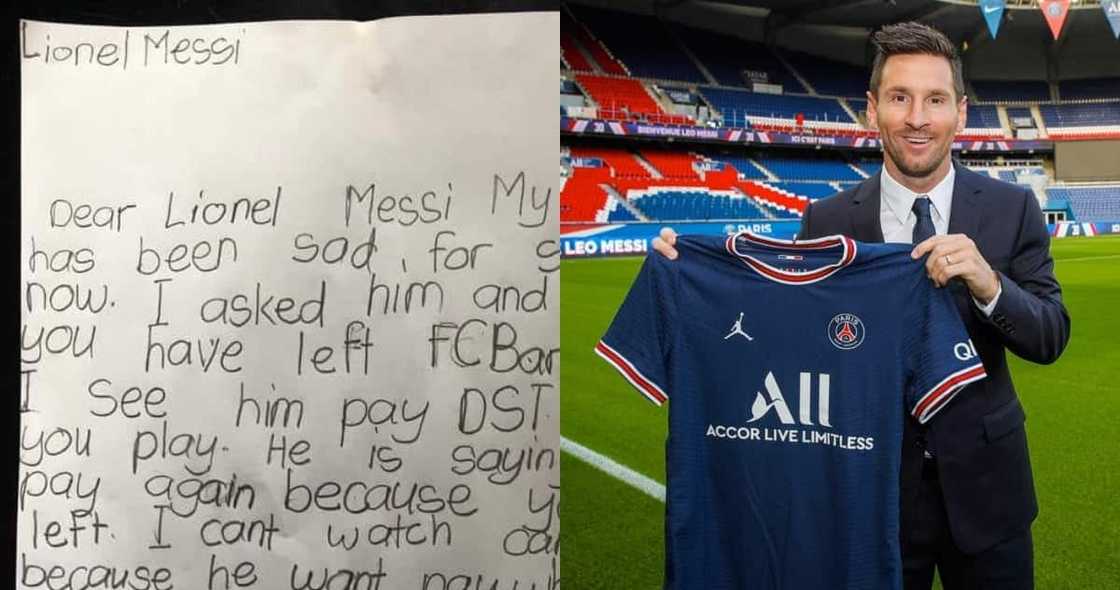 Lionel Messi
Dear Lionel Messi My
has been sad for
now. I asked him and
you have left FCBar
I See him pay DST.
you play. He is sayin
pay again because y
left. I cant watch car
because he want pay
BIENVENUE LEO MESSI
ICI C'EST PARIS
PARIS
LEO MESSI
PARIS
All
ACCOR LIVE LIMITLESS